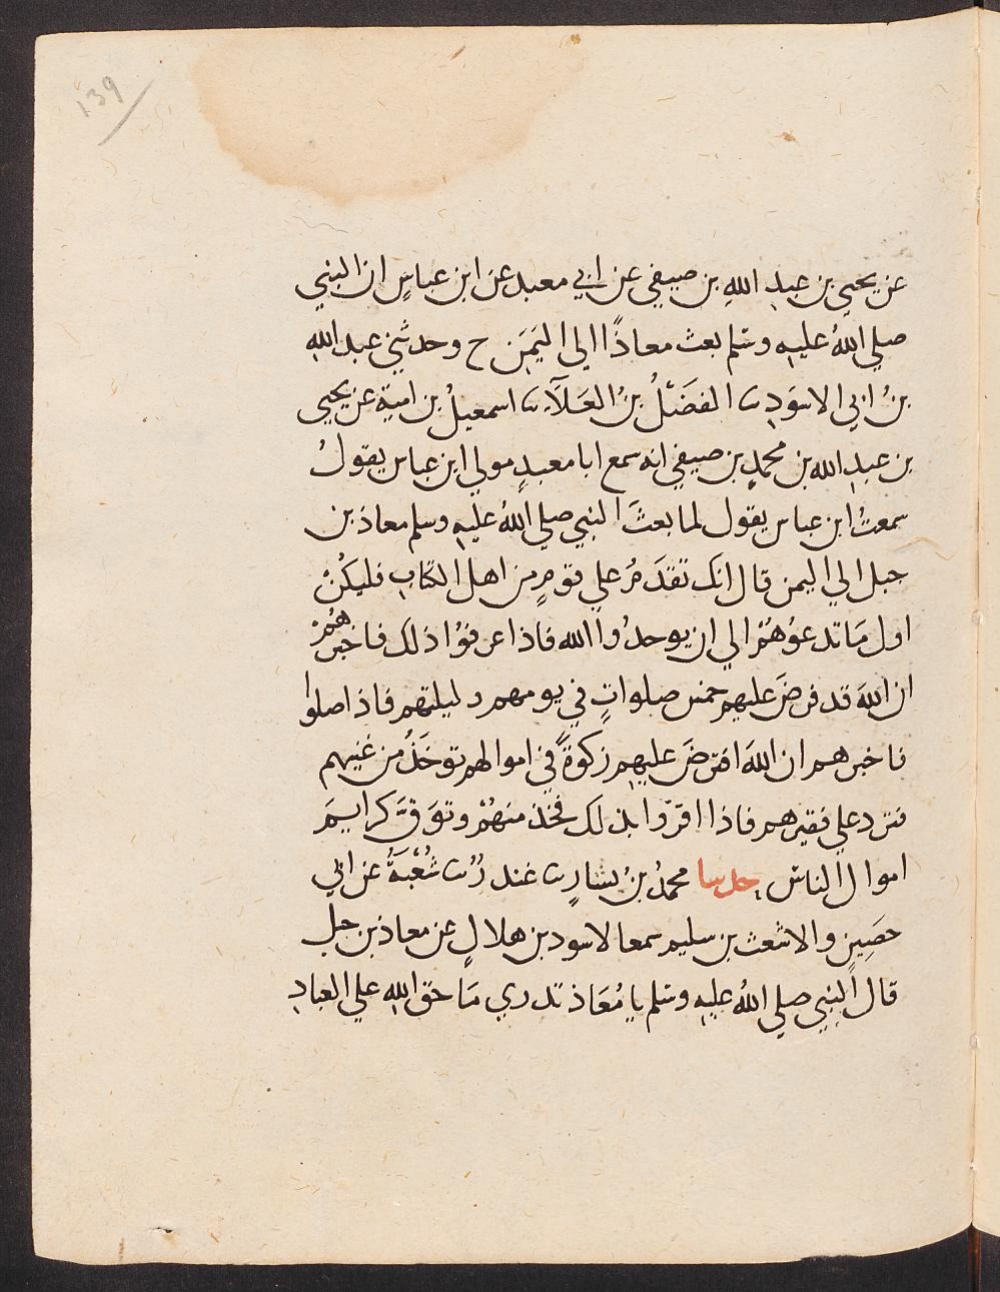 139
عن يحيي بن عبدِ اللهِ بن صيفي عن ابي معبد عن ابن عباسٍ ان النبي
صلي اللهُ عليهِ وسلم بعث معاذًا الي اليَمَن ح وحدثني عبد اللهِ
بنُ ابي الاسوَدِ ثنا الفضَلُ بنُ العَلَآءِ ثنا اسمعيلُ بن امية عن يحيي
بن عبدِ الله بن محمدِ بن صيفي انه سمع ابا معبدٍ مولي ابن عباس يقولُ
سمعتُ ابن عباس يقول لما بعثَ النبي صلي اللهُ عليهِ وسلم معاذ بن
جبل الي اليمن قال انك تقدَمُ علي قومٍ من اهل الكتابِ فليكُنْ
اول مَا تدعُوهُمْ الي ان يوحدُوا الله فاذا عرفوُا ذلك فاخبرهُمْ
ان اللهَ قد فرضَ عليهم خمس صلواتٍ في يومهم وليلتهم فاذا صلوا
فاخبرهم ان اللهَ افترضَ عليهِم زكوةً في اموالهم توخَذُ من غنيهم
فترد علي فقيرهم فاذا اقرّوا بذلك فخذ منهُمْ وتوَقَّ كرايمَ
اموال الناس حدثنا محمدُ بنُ بشارٍ ثنا غندرُ ثنا شُعْبَةُ عن ابي
حصَينٍ والاشعث بن سليم سمعا لاسود بن هلالٍ عن معاذ بن جبل
قال النبي صلي اللهُ عليهِ وسلم يا مُعَاذ تدري مَا حق اللهِ علي العبادِ